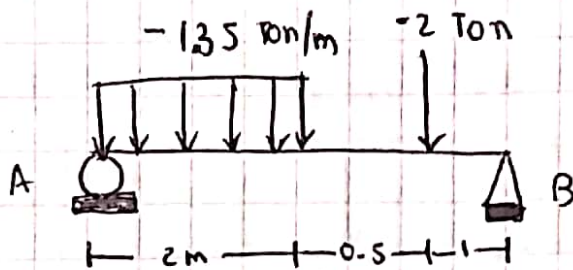 -135 Ton/m
-2 Ton
A
B
2m
0.5
1